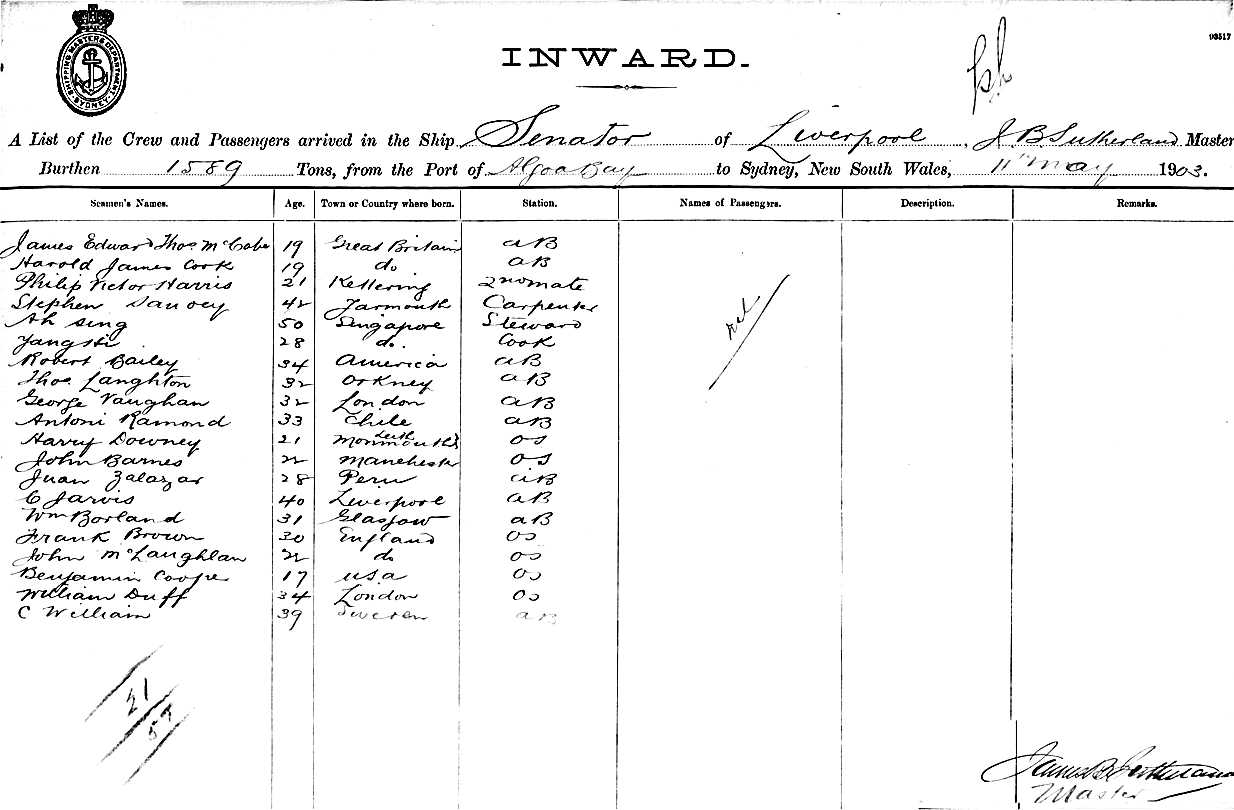 SHIPPING MASTERS DEPARTMENT SYDNEY
93517
INWARD.
A List of the Crew and Passengers arrived in the Ship Senator of Liverpool, J B Sutherland Master
Burthen 1589 Tons, from the Port of Algoa Bay to Sydney, New South Wales, 11th May 1903.
Seamen's Names. Age. Town or Country where born. Station. Names of Passengers. Description. Remarks.
James Edward Thos McCabe 19 Great Britain AB
Harold James Cook 19 do AB
Philip Victor Harris 21 Kettering 2nd mate
Stephen 42 Yarmouth Carpenter
Ah Sing 50 Singapore Steward
Yangsti 28 do. Cook
Robert Bailey 34 America AB
Thos Langhton 32 Orkney AB
George Vaughan 32 London AB
Antoni Ramond 33 Chile AB
Harry Downey 21 Leith OS
John Barnes 22 Manchester OS
Juan Zalazar 28 Peru AB
C Jarvis 40 Liverpool AB
Wm Borland 31 Glasgow AB
Frank Brown 30 England OS
John McLaughlan 22 do OS
Benjamin Cooper 17 USA OS
William Duff 34 London OS
C William 39 Sweden AB
21
James B Sutherland
Master